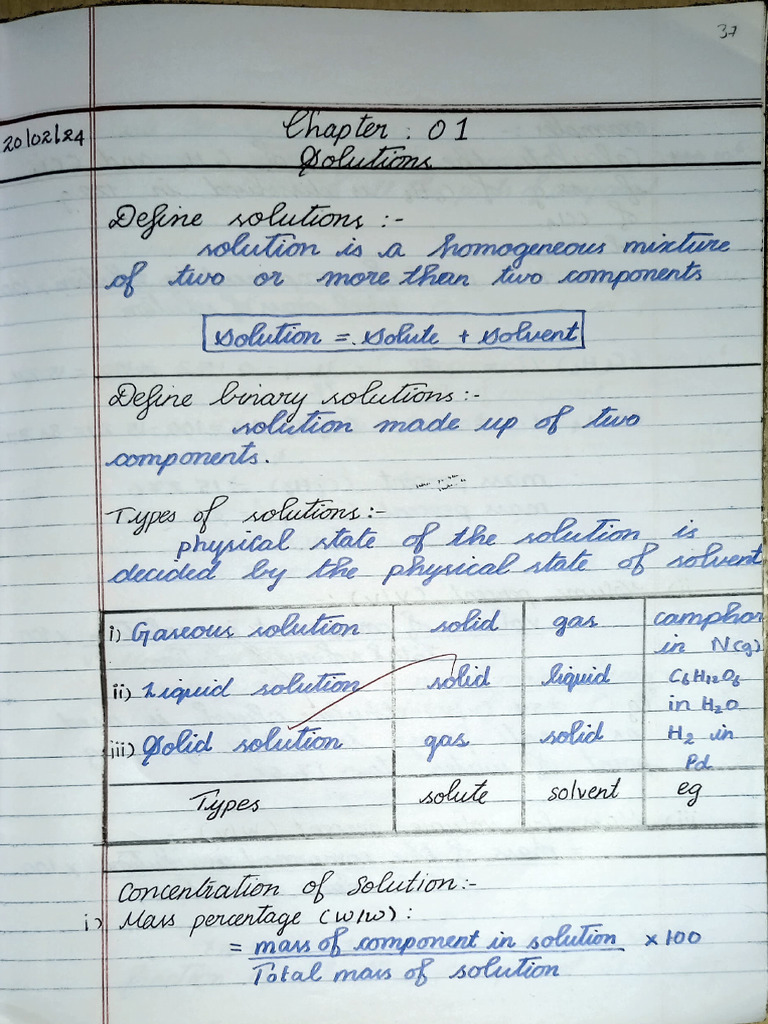 37
20/02/24
Chapter : 01
Solutions
Define solutions :-
solution is a homogeneous mixture
of two or more than two components
solution = solute + solvent
Define binary solutions :-
solution made up of two
components.
Types of solutions :-
physical state of the solution is
decided by the physical state of solvent
i) Gaseous solution solid gas camphor
in N(g)
ii) Liquid solution solid liquid C6H12O6
in H2O
iii) Solid solution gas solid H2 in
Pd
Types solute solvent eg
Concentration of Solution :-
i) Mass percentage (w/w) :
= mass of component in solution × 100
Total mass of solution